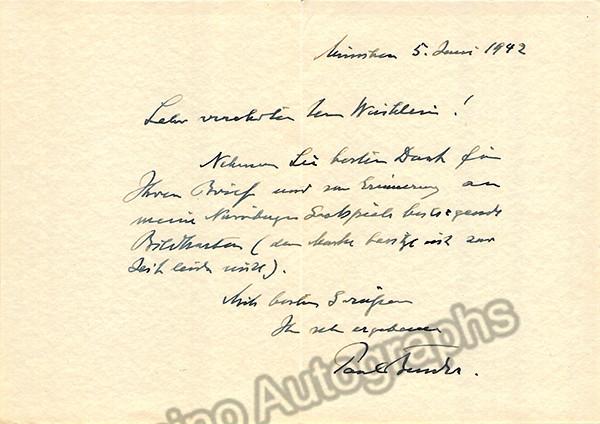 München 5. Juni 1942
Sehr verehrter Herr Wüchlein!
Nehmen Sie besten Dank für
Ihren Brief und zur Erinnerung an
meine Nürnberger Gastspiele beiliegende
Bildkarten (den Marke besitze ich zur
Zeit leider nicht).
Mit besten Grüßen
Ihr sehr ergebener
Paul Bender.
ino Autographs